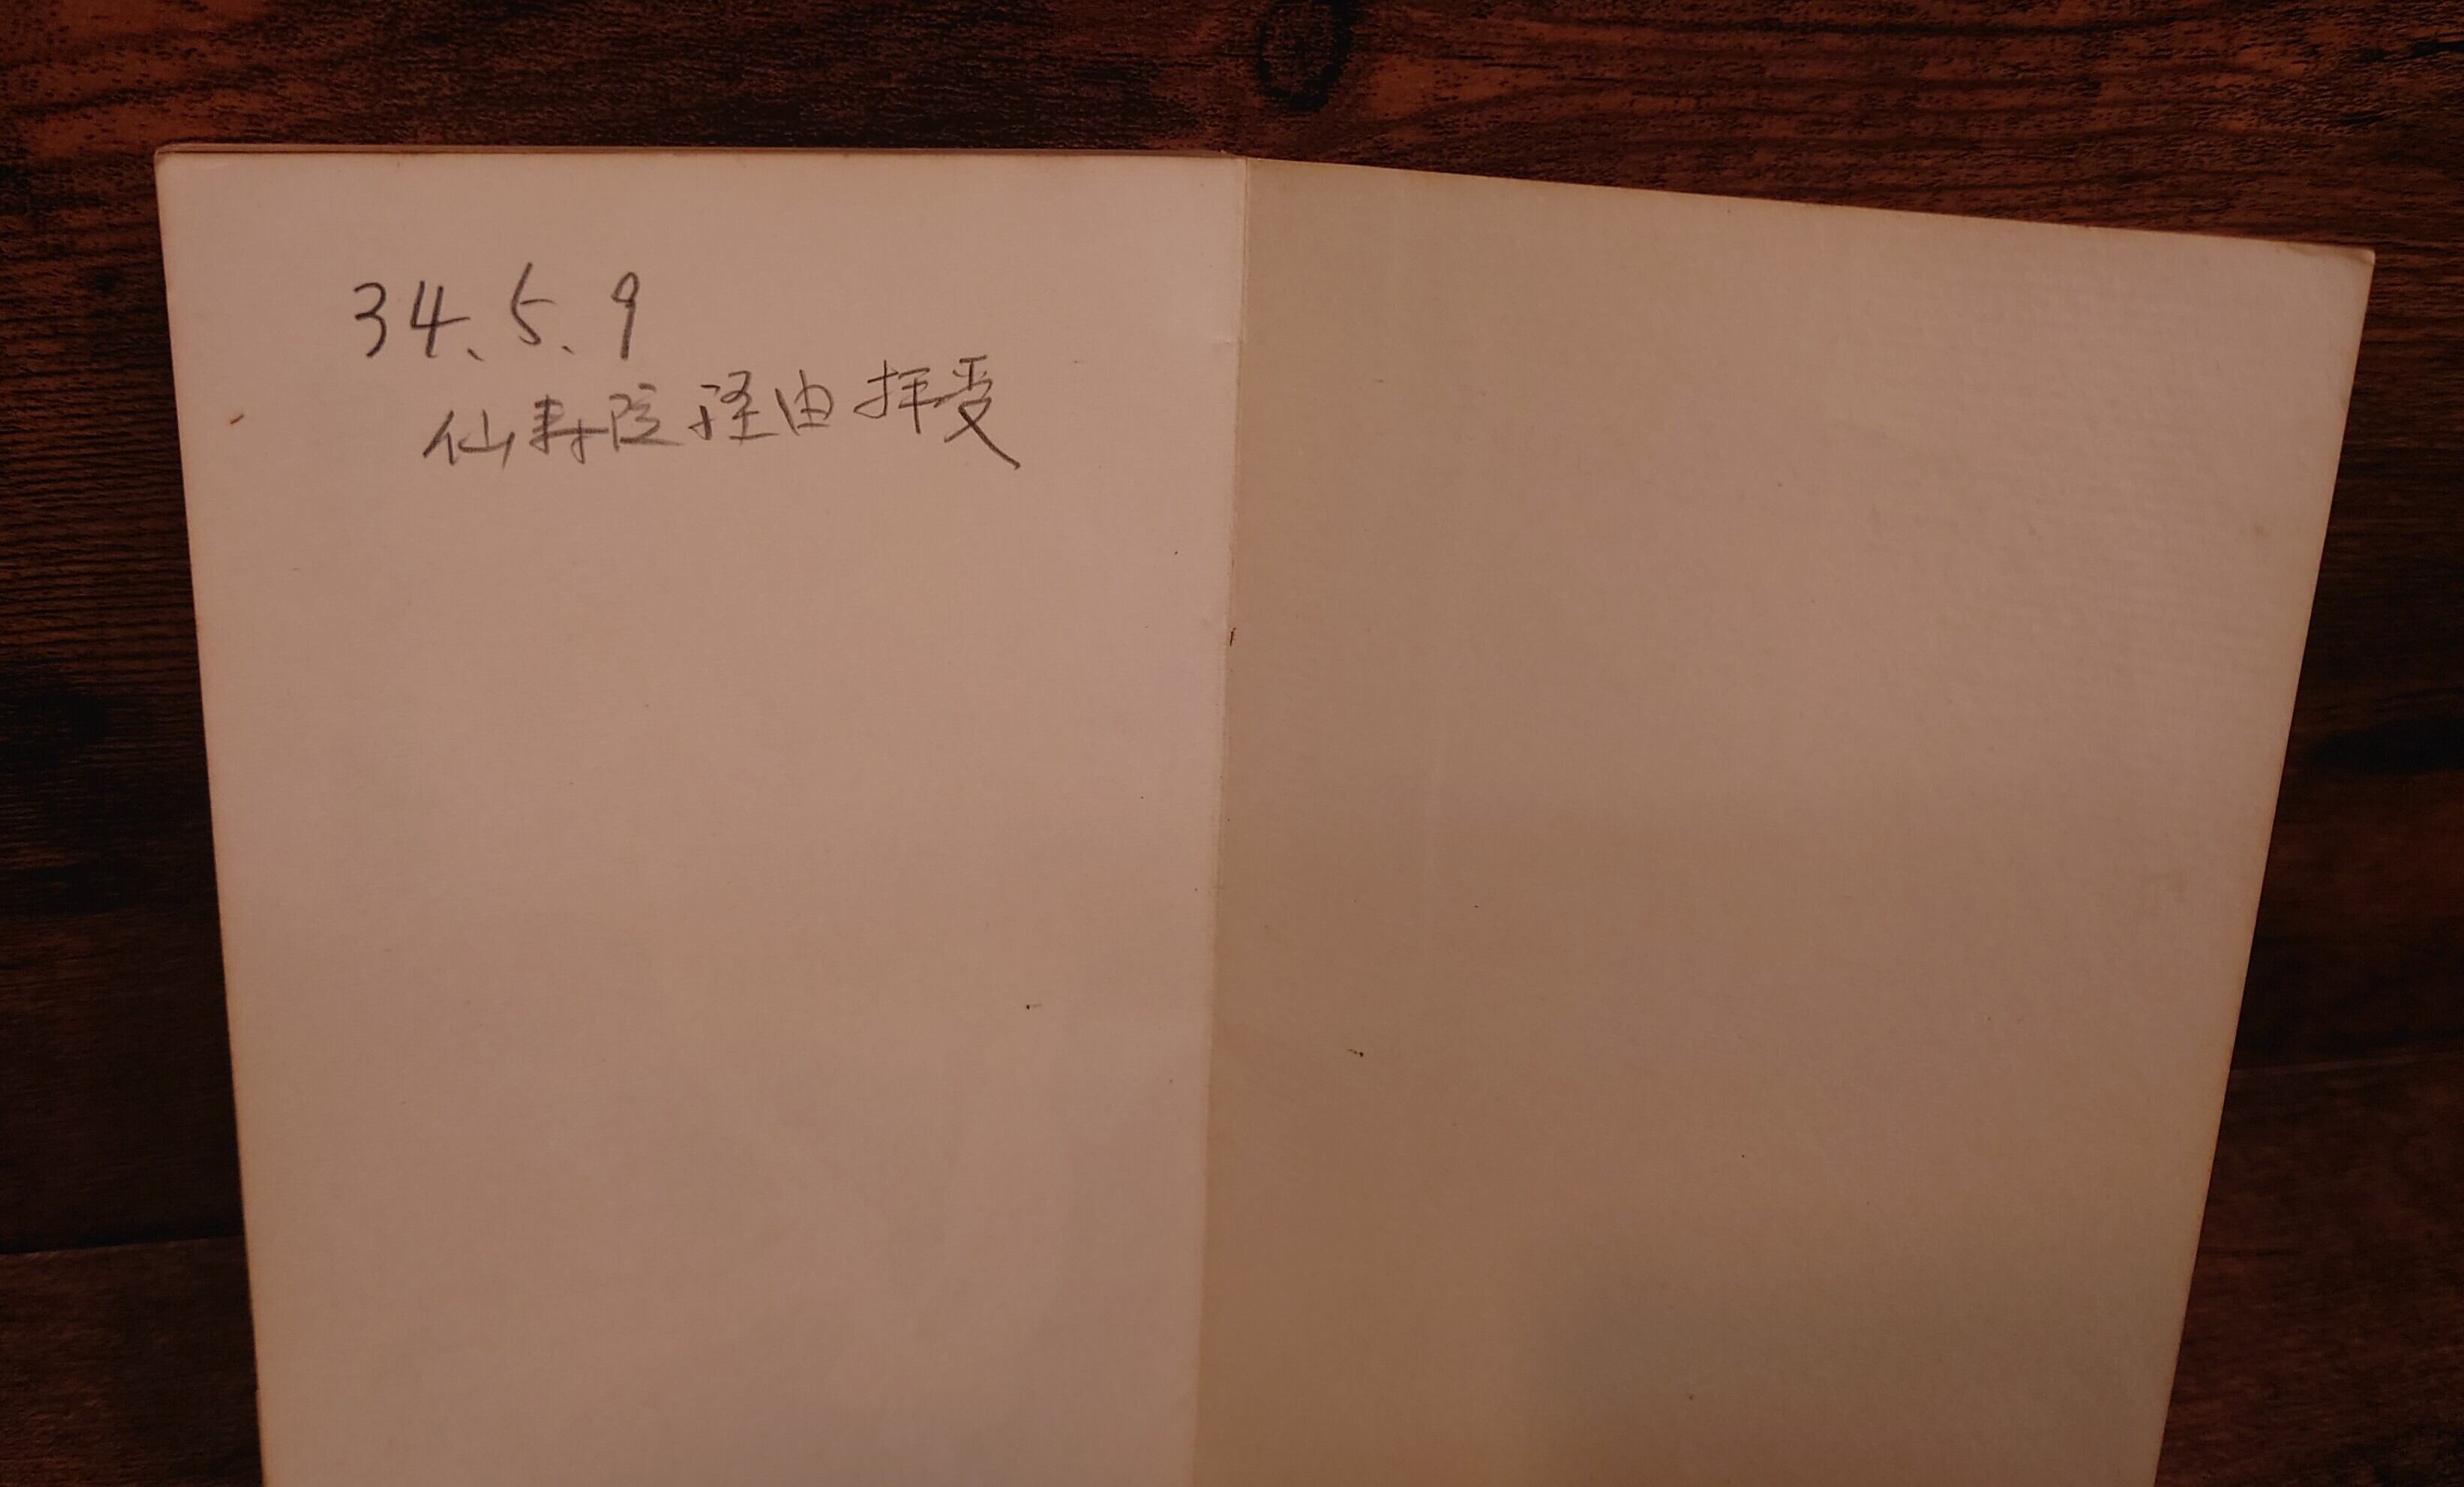 34、5、9
仙寿院経由拝受